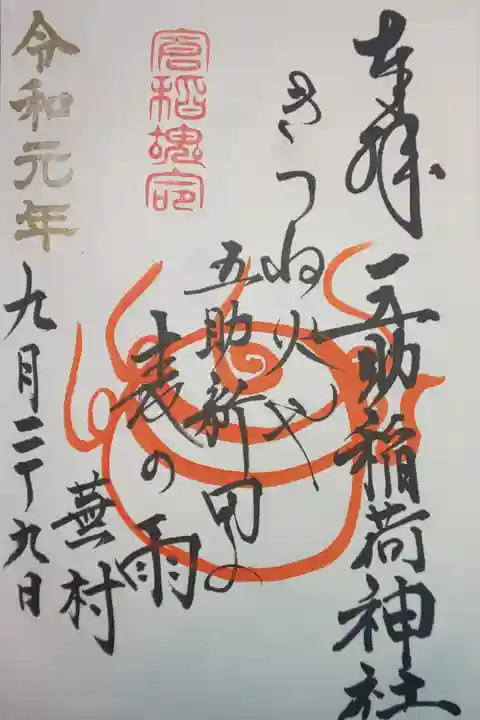 奉拝
五助稲荷神社
きつね火や
五助新田の
麦の雨
蕪村
倉稲魂命
令和元年
九月二十九日